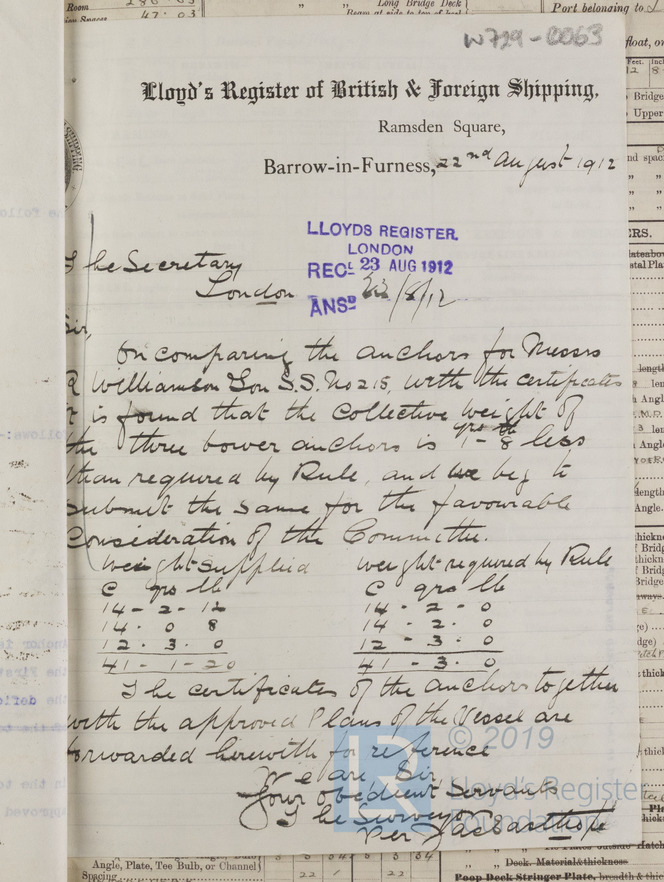 W729-0063
Lloyd's Register of British & Foreign Shipping,
Ramsden Square,
Barrow-in-Furness, 22nd August 1912
LLOYDS REGISTER.
LONDON
RECD 23 AUG 1912
ANSD /8/12
The Secretary
London
Sir,
On comparing the anchors for Messrs
R Williamson & Son S.S. No 215, with the certificates
it is found that the collective weight of
the three bower anchors is qrs lb 1 - 8 less
than required by Rule, and we beg to
submit the same for the favourable
consideration of the Committee.
Weight supplied weight required by Rule
C qrs lb C qrs lb
14 - 2 - 12 14 - 2 - 0
14 - 0 8 14 - 2 - 0
12 - 3 - 0 12 - 3 - 0
41 - 1 - 20 41 - 3 - 0
The certificates of the anchors together
with the approved Plans of the Vessel are
forwarded herewith for reference
We are, Sir,
Your obedient Servants
The Surveyors
Per
© 2019
Lloyd's Register
Foundation
Room
Long Bridge Deck
Port belonging to
Angle, Plate, Tee Bulb, or Channel
Spacing
22 22
Deck. Material & thickness
Poop Deck Stringer Plate, breadth & thick